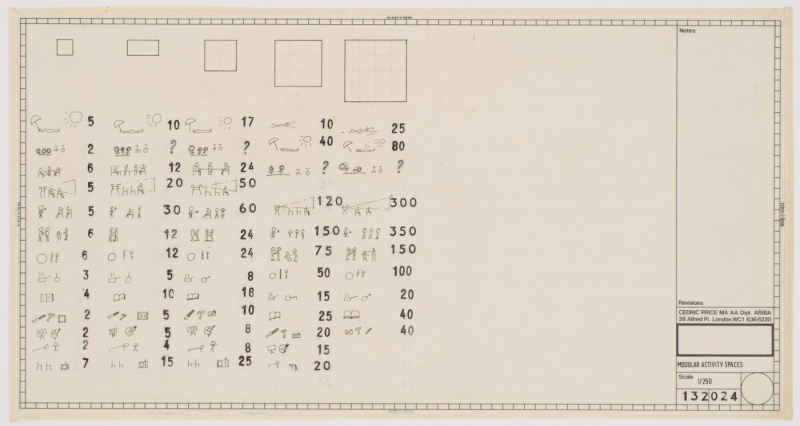 Notes
5 10 17 10 25
2 ? ? 40 80
6 12 24 ? ?
5 20 50
5 30 60 120 300
6 12 24 150 350
6 12 24 75 150
3 5 8 50 100
4 10 18 15 20
2 5 10 25 40
2 5 8 20 40
2 4 8 15
7 15 25 20
Revisions
CEDRIC PRICE MA AA Dipl. ARIBA
38 Alfred Pl. London WC1 636-5220
MODULAR ACTIVITY SPACES
Scale 1/250
132024